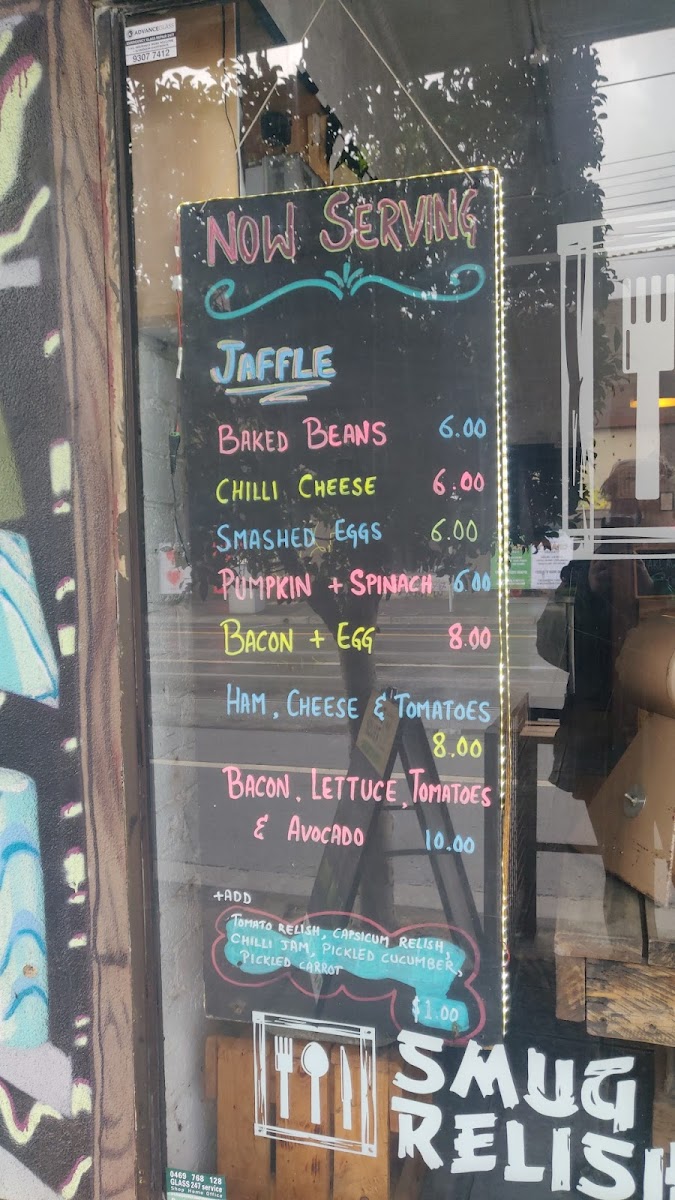 ADVANCE
9307 7412
NOW SERVING
JAFFLE
BAKED BEANS 6.00
CHILLI CHEESE 6.00
SMASHED EGGS 6.00
PUMPKIN + SPINACH 6.00
BACON + EGG 8.00
HAM, CHEESE & TOMATOES
8.00
BACON, LETTUCE, TOMATOES
& AVOCADO 10.00
+ADD
TOMATO RELISH, CAPSICUM RELISH,
CHILLI JAM, PICKLED CUCUMBER,
PICKLED CARROT
$1.00
SMUG
RELISH
0469 768 128
GLASS 247 service
Shop Home Office